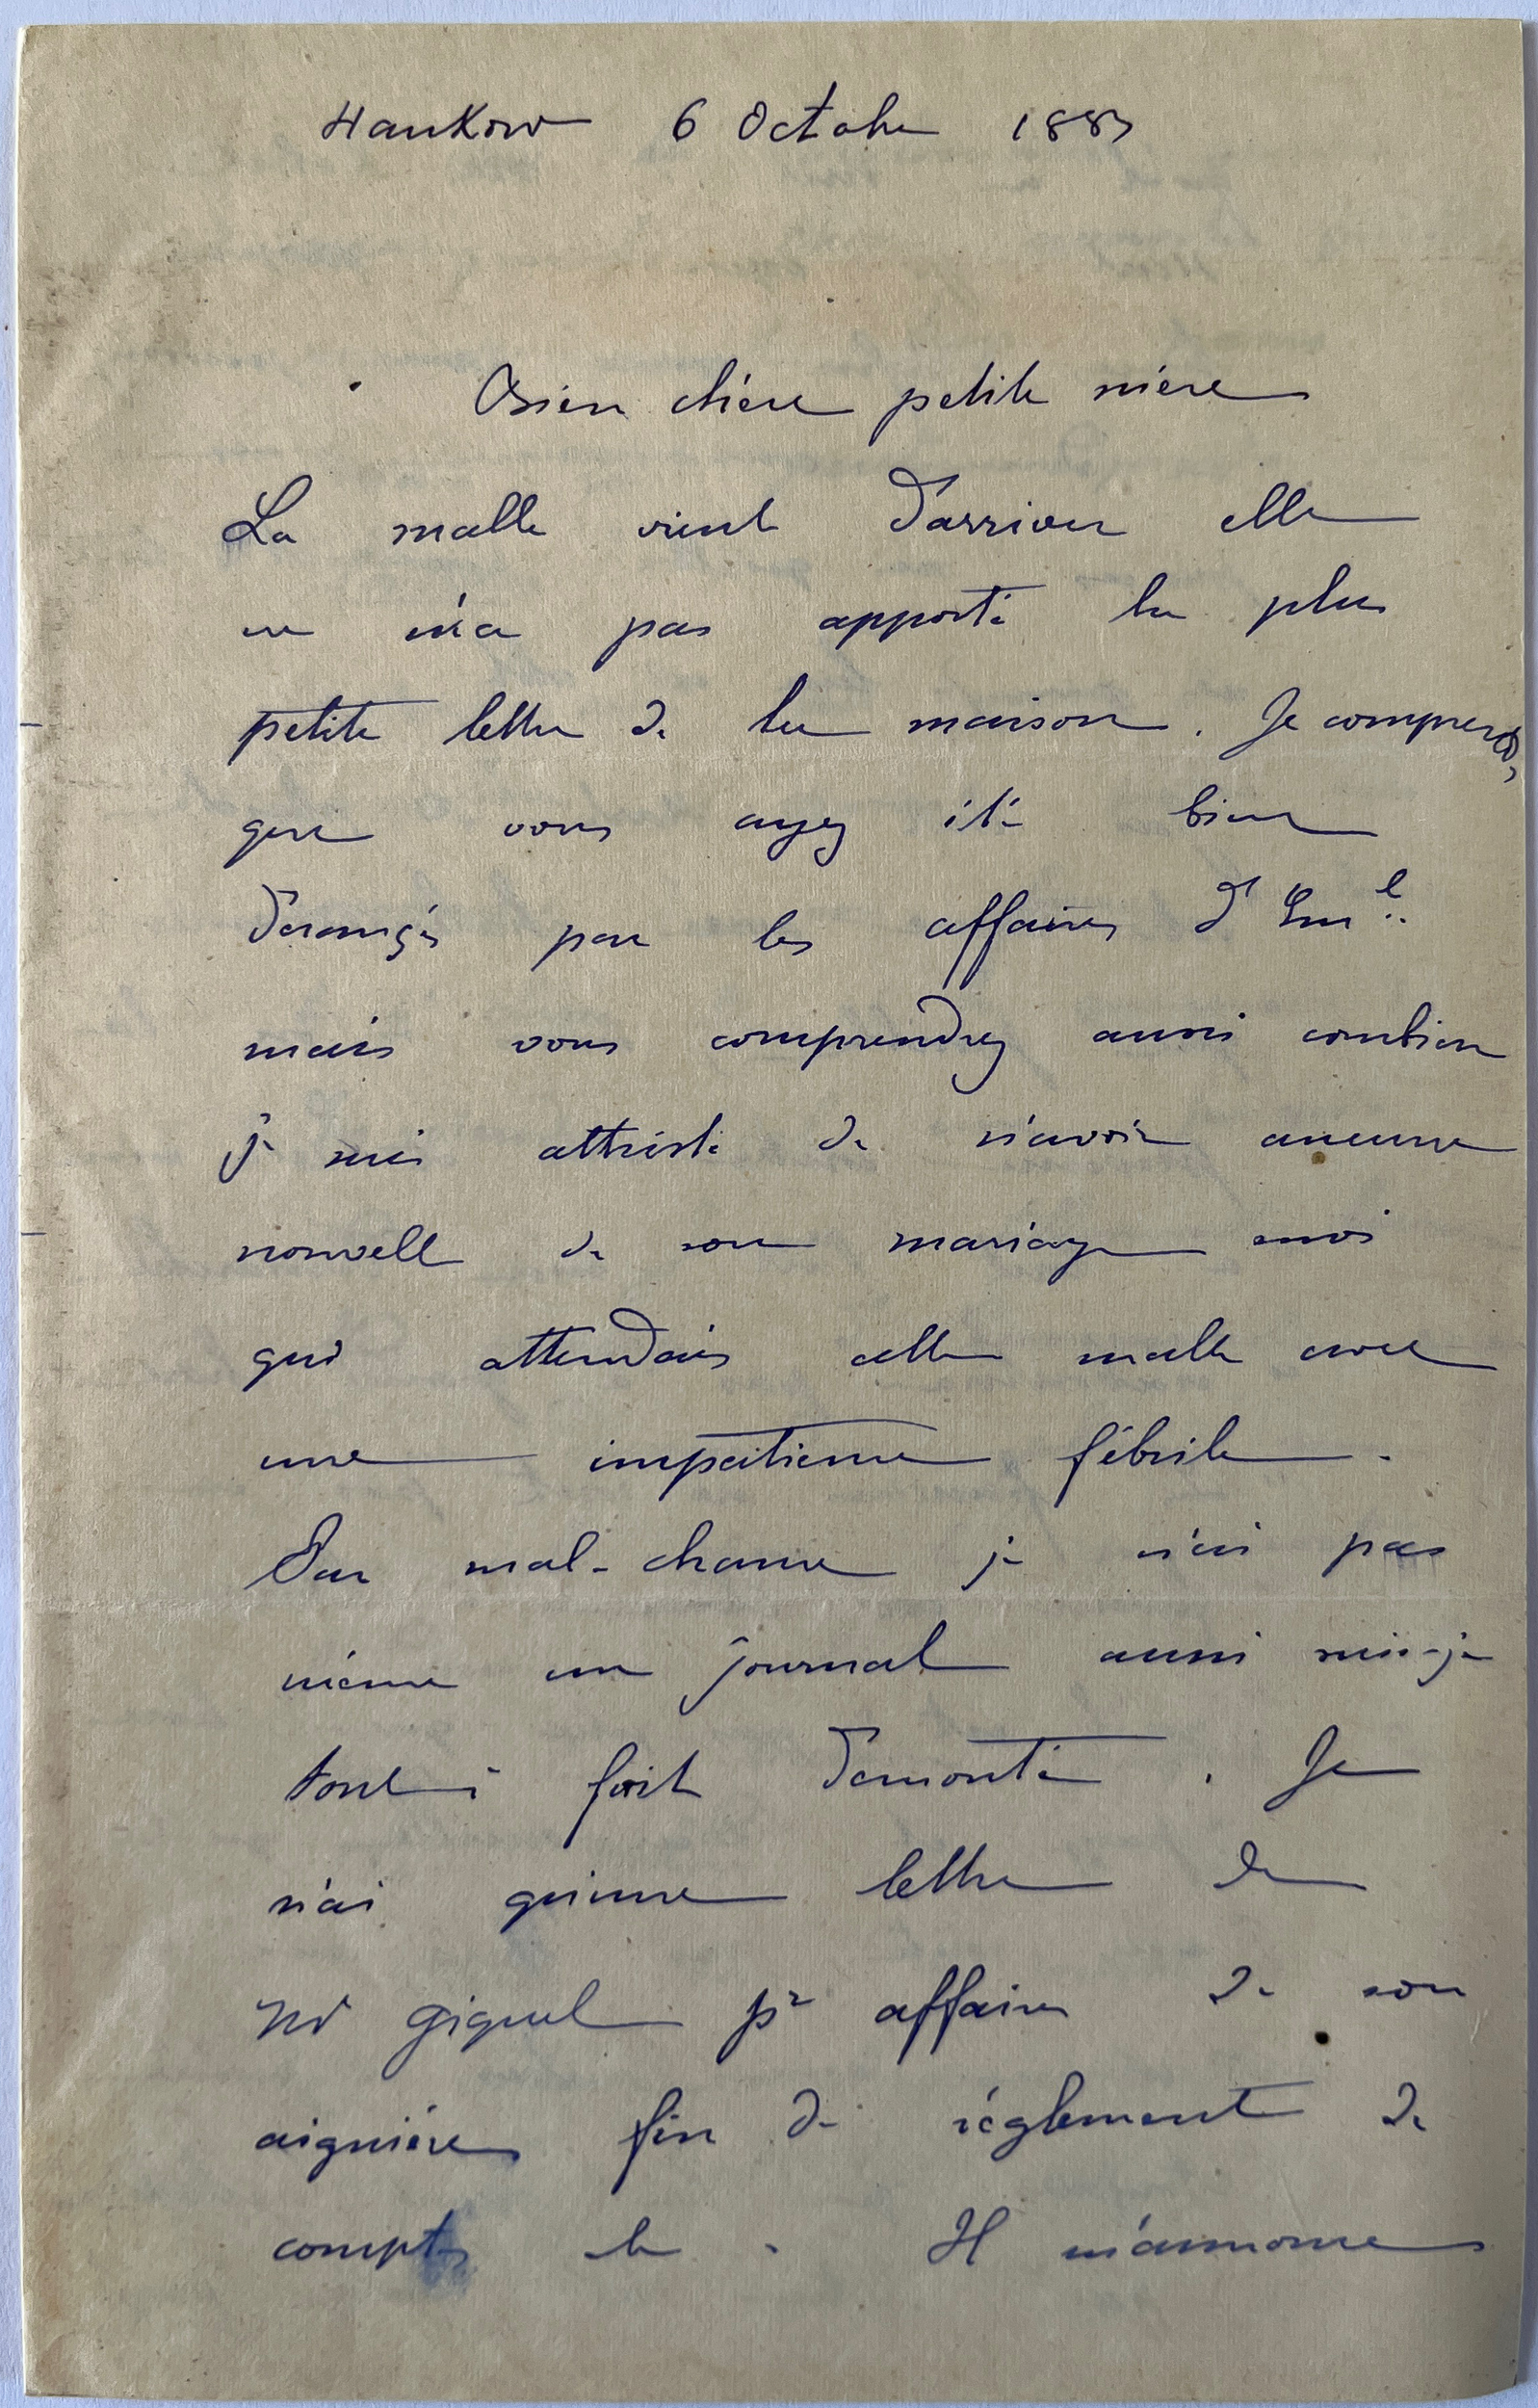 Hankow 6 Octobre 188
Bien chère petite mère
La malle vient d'arriver elle
ne m'a pas apporté la plus
petite lettre de la maison. Je comprends
que vous ayez été bien
derangés par les affaires d'Eml
mais vous comprendrez aussi combien
je suis attristé de n'avoir aucune
nouvelle de son mariage moi
qui attendais cette malle avec
une impatience fébrile.
Par mal-chance je n'ai pas
même un journal aussi suis-je
tout à fait demonté. Je
n'ai qu'une lettre de
Mr Giquel pr affaires de son
fin de réglement de
comptes etc. Il m'annonce